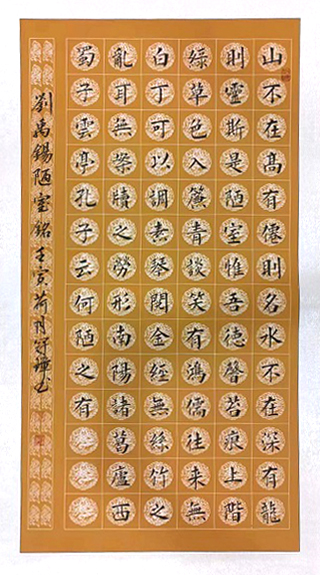 山不在高有僊則名水不在深有龍
則靈斯是陋室惟吾德馨苔痕上階
綠草色入簾青談笑有鴻儒往来無
白丁可以調素琴閱金經無絲竹之
亂耳無案牘之勞形南陽諸葛廬西
蜀子雲亭孔子云何陋之有
劉禹錫陋室銘 壬寅荷月